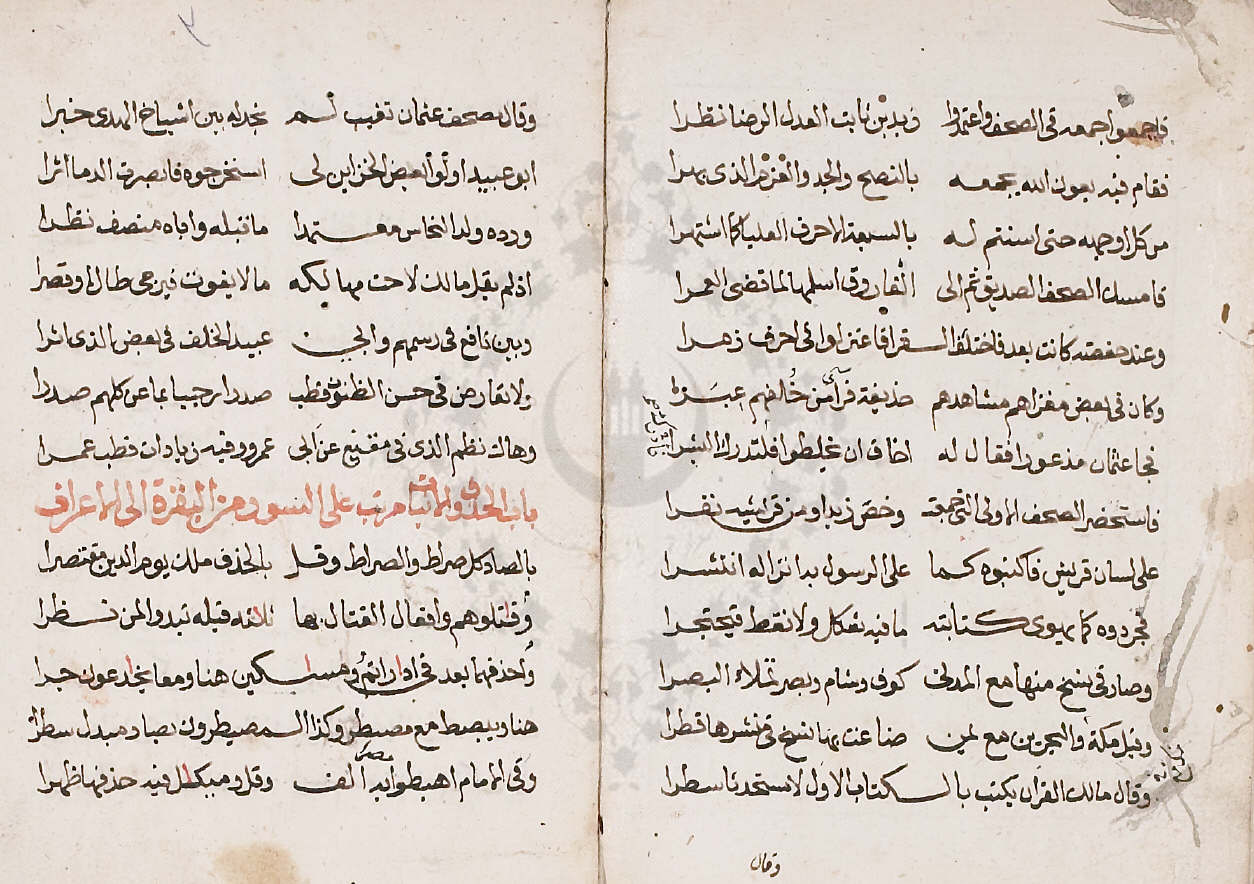 فاجمعوا جمعه في الصحف واعتمدوا زيد بن ثابت العدل الرضا نظرا
فقام فيه بعون الله يجمعه بالنصح والجد والعزم الذي بهرا
من كل اوجهه حتى استتم له بالسبعة الاحرف العليا كما اشتهرا
فامسك الصحف الصديق ثم الى الفاروق اسلمها لما قضى العمرا
وعند حفصة كانت بعد فاختلف القراء فاعتزلوا في احرف زمرا
وكان في بعض مغزاهم مشاهدهم حذيفة فرأى من خلفهم عبرا
فجا عثمان مذعورا فقال له اخاف ان يخلطوا فادرك البشرا
فاستحضر الصحف الاولى التي جمعت وخص زيدا ومن قريشه نفرا
على لسان قريش فاكتبوه كما على الرسول به انزاله انتشرا
فجردوه كما يهوى كتابته ما فيه شكل ولا نقط فيحتجرا
وصار في نسخ منها مع المدني كوف وشام وبصر تملاء البصرا
وقيل مكة والبحرين مع يمن ضاعت بها نسخ في نشرها قطرا
وقال مالك القرآن يكتب بالكتاب الاول لا مستحدثا سطرا
وقال
٢
وقال مصحف عثمان تغيب لم نجد له بين اشياخ الهدى خبرا
ابو عبيد اولوا بعض الخزاين لي استخرجوه فابصرت الدما اثرا
ورده ولد النحاس معتمدا ما قبله واباه منصف نظرا
اذ لم يقل مالك لاحت مهالكه ما لا يفوت فيرجى طال او قصرا
وبين نافع في رسمهم وابي عبيد الخلف في بعض الذي اثرا
ولا تعارض في حسن الظنون فطب صدرا رحيبا بما عن كلهم صدرا
وهاك نظم الذي في مقنع عن ابي عمرو وفيه زيادات فطب عمرا
باب الحذف والاثبات مرتب على السور من البقرة الى الاعراف
بالصاد كل صراط والصراط وقل بالحذف ملك يوم الدين مقتصرا
وقتلوهم وافعال القتال بها ثلاثة قبله تبدو لمن نظرا
واحذفهما بعد في اداراتم ومسكين هنا ومعا يخدعون جرا
هنا ويبصط مع مصيطر وكذا المصيطرون بصاد مبدل سطرا
وفي الامام اهبطوا مصرا به الف وقل وميكل فيه حذفها ظهرا